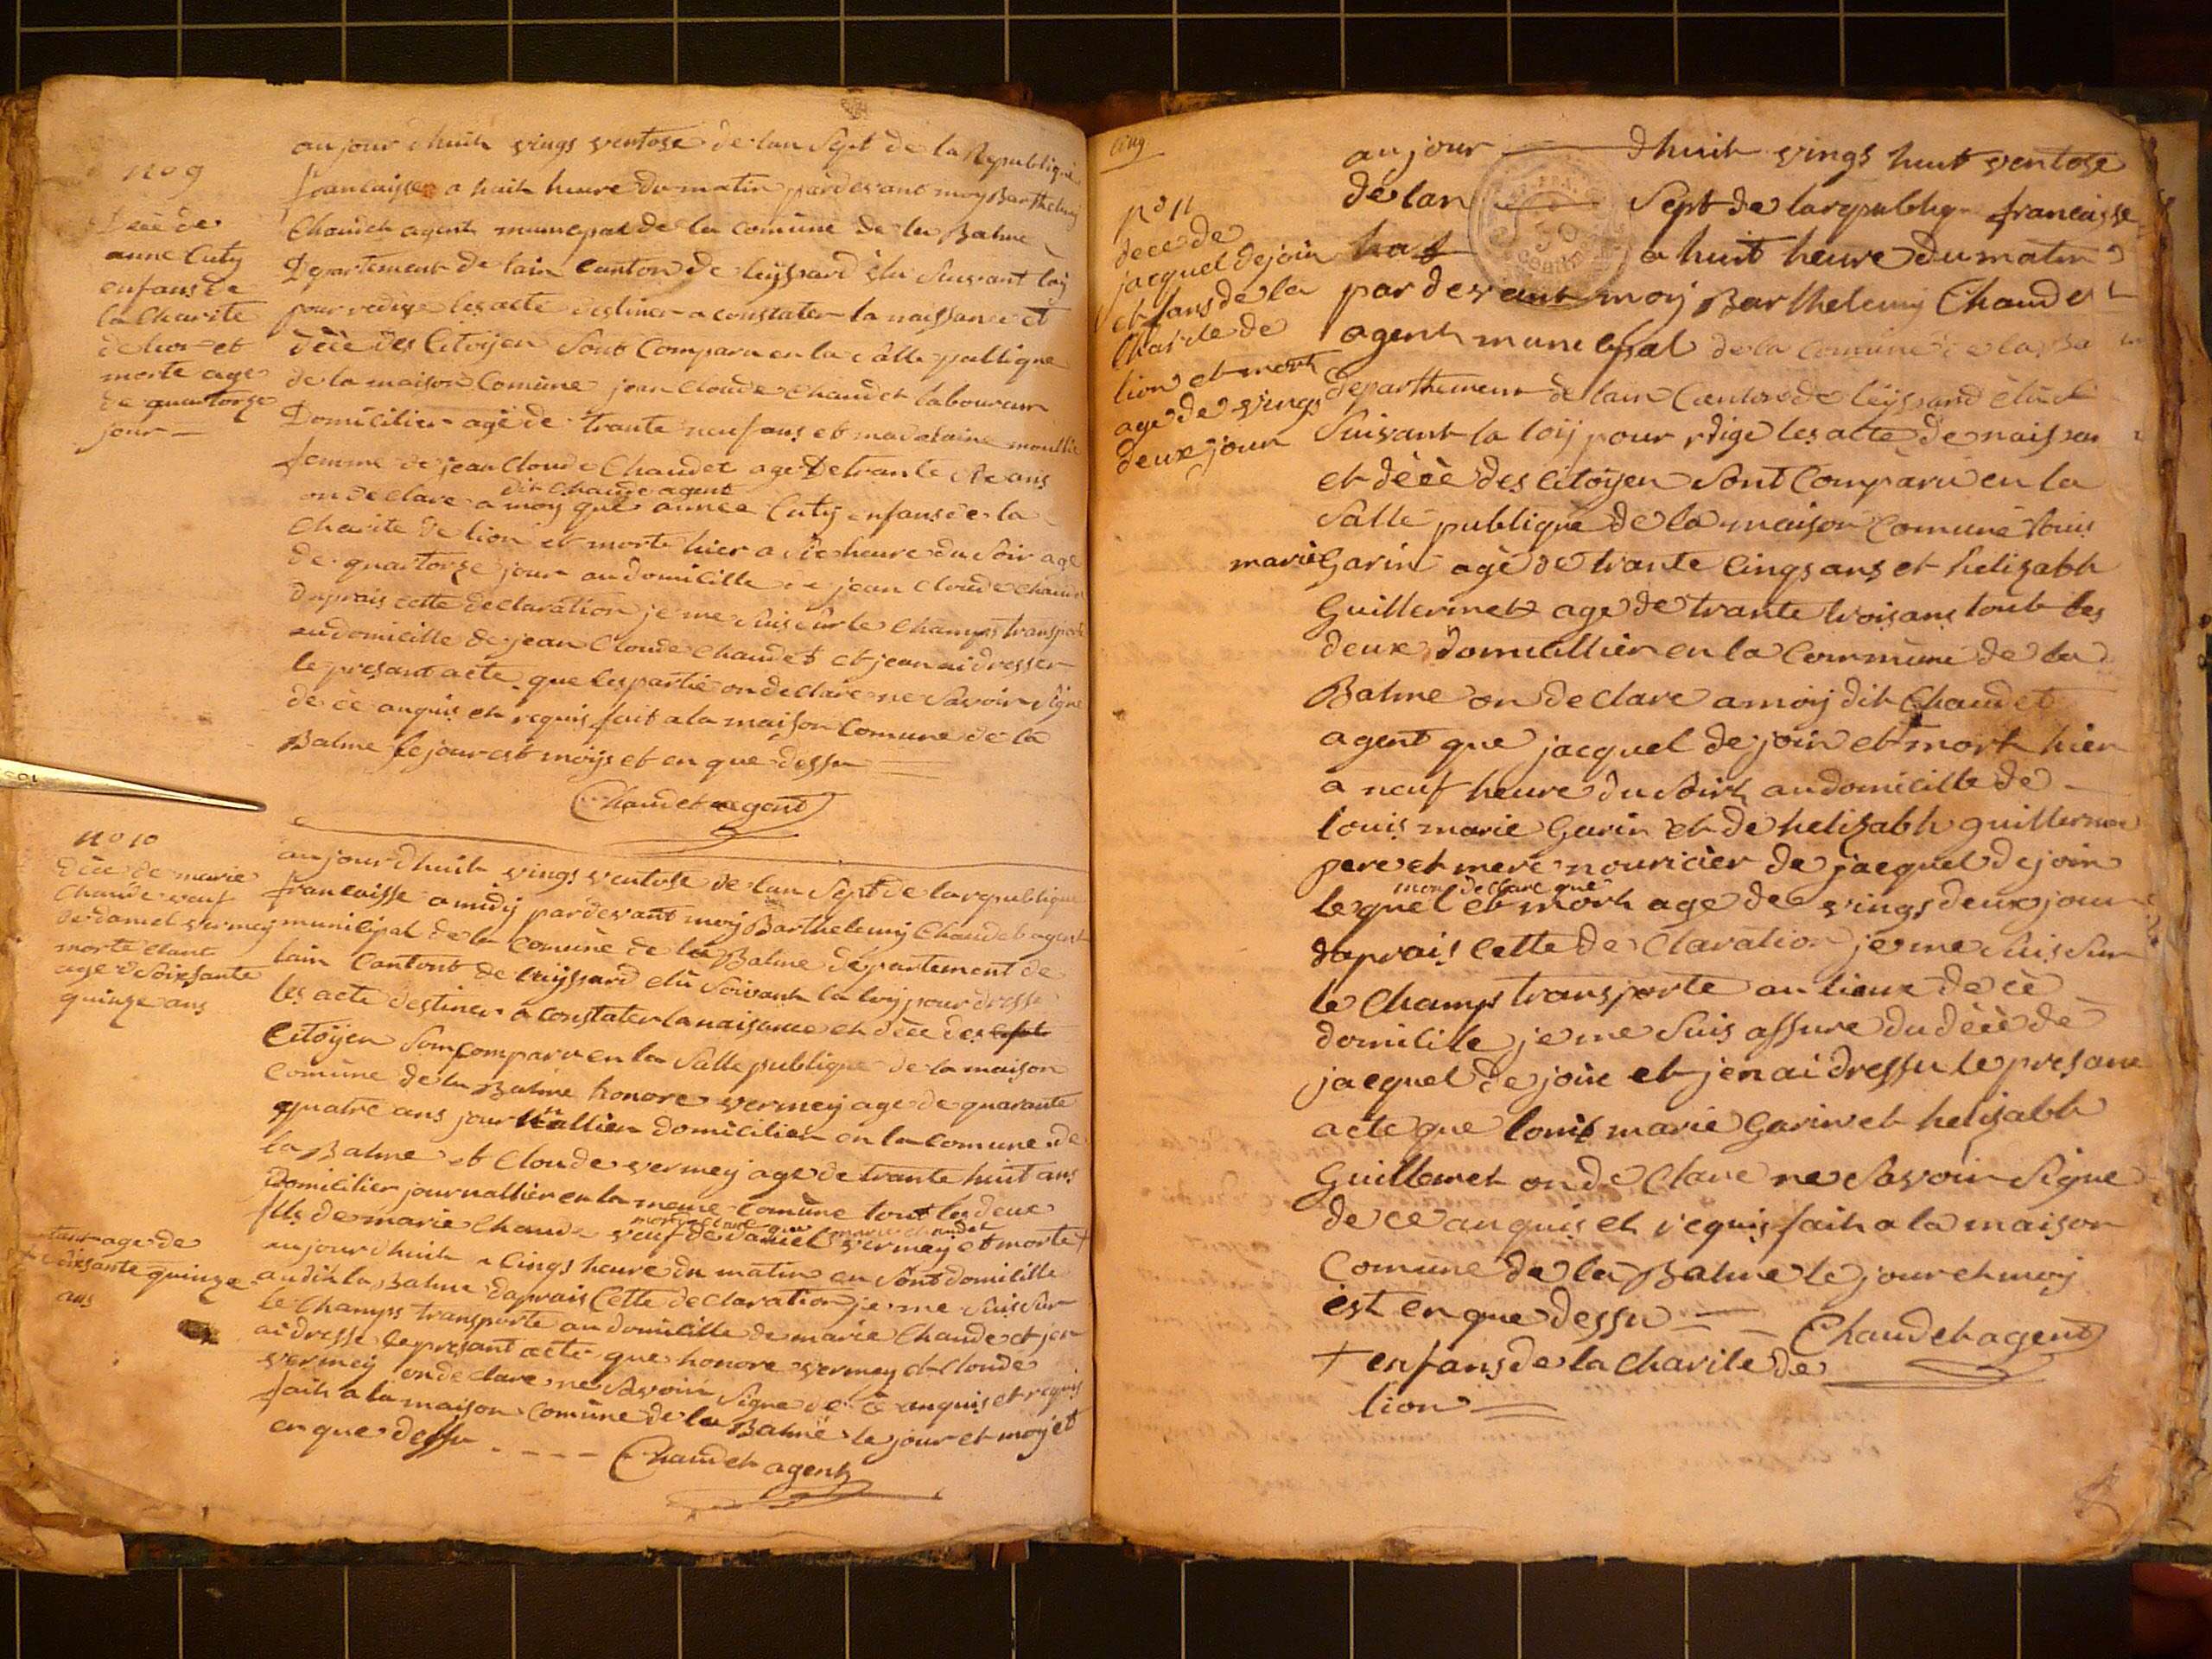 no 9
Décé de
anne Cuty
enfans de
la Charite
de lion et
morte age
de quatorze
jour
aujour dhuit vings ventose de lan Sept de la Republique
francaisse a huit heure du matin pardevant moy Barthelemy
Chaudet agent munepal de la comune de la Balme
Departement de lain Canton de leyssard élu Suivant loy
pour redige les acte destiner a constater la naissance et
décè des Citoyen Sont Comparu en la Salle publique
de la maison Comune jean Cloude Chaudet laboureur
Domicilier agé de trante neuf ans et madelaine
femme de jean Cloude Chaudet age de trante ans
dit Chaude agent
on declare a moy que annee Cuty enfans de la
Charite de lion et morte hier a heure du Soir age
de quartorze jour au domicille de jean Cloude
daprais cette declaration je me suis sur le Champs transporte
au domicille de jean Cloude Chaudet et jean ai dresser
le presant acte que les partie on declare ne Savoir Signe
de cè anquis et requis fait a la maison Comune de la
Balme le jour est moys et en que dessu
Chaudet agent
no 10
décè de marie
Chaude veuf
de daniel vermey
morte etant
age de Soixsante
quinze ans
aujour dhuit vings ventose de lan Sept de la republique
francaisse a midy pardevant moy Barthelemy Chaudet agent
municipal de la Comune de la Balme departement de
lain Cantont de leyssard elu Soivant la loy pour dresse
les acte destiner a constater la naisance et décè des
Citoyen Som comparu en la Salle publique de la maison
Comune de la Balme honore vermey age de quarante
quatre ans journallier domicilier en la Comune de
la Balme et Cloude vermey age de trante huit ans
Domicilier journallier en la meme Comune tout les deux
fils de marie Chaude veuf de daniel vermey et morte +
aujour dhuit a cings heure du matin en Sont domicille
audit la Balme daprais Cette declaration je me suis sur
le Champs transporte au domicille de marie Chaude et jen
ai dresse le presant acte que honore vermey et Cloude
vermey on declare ne Savoir Signe de cè anquis et requis
fait a la maison Comune de la Balme le jour et moy et
en que dessu
Chaudet agent
age de
soixsante quinze
ans
cinq
no 11
decè de
jacquel dejoin
et fans de la
Charite de
lion et mort
age de vings
deux jour
aujour dhuit vings huit ventose
de lan Sept de la republiq francaisse
a huit heure du matin
par devant moy Barthelemy Chaudet
agent munecipal de la Comune de la Ba
departhement de lain Canton de leyssard élu
Suivant la loy pour rdige les acte de naissan
et décè des Citoyen Sont Comparu en la
Salle publique de la maison Comune louis
marie Garin agé de trante cings ans et helizabth
Guillermet age de trante trois ans tout les
deux domicillier en la Commune de la
Balme on declare a moy dit Chaudet
agent que jacquel de join et mort hier
a neuf heure du Soirt au domicille de
louis marie Garin et de helizabth guillermet
pere et mere nouricier de jacquel dejoin
mon declare que
lequel et mort age de vings deux jour
daprais cette declaration je me suis sur
le Champs transporte au lieux de cè
domicile je me Suis assure du décè de
jacquel de join et jen ai dressu le presant
acte que louis marie Garin et helizabth
Guillermet on declare ne Savoir Signe
de ce anquis et requis fait a la maison
Comune de la Balme le jour et moy
est en que dessu
Chaudet agent
+ enfans de la Charite de
lion